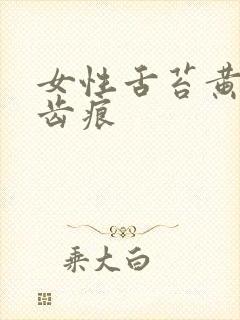 女性舌苔黄
齿痕
乘大白